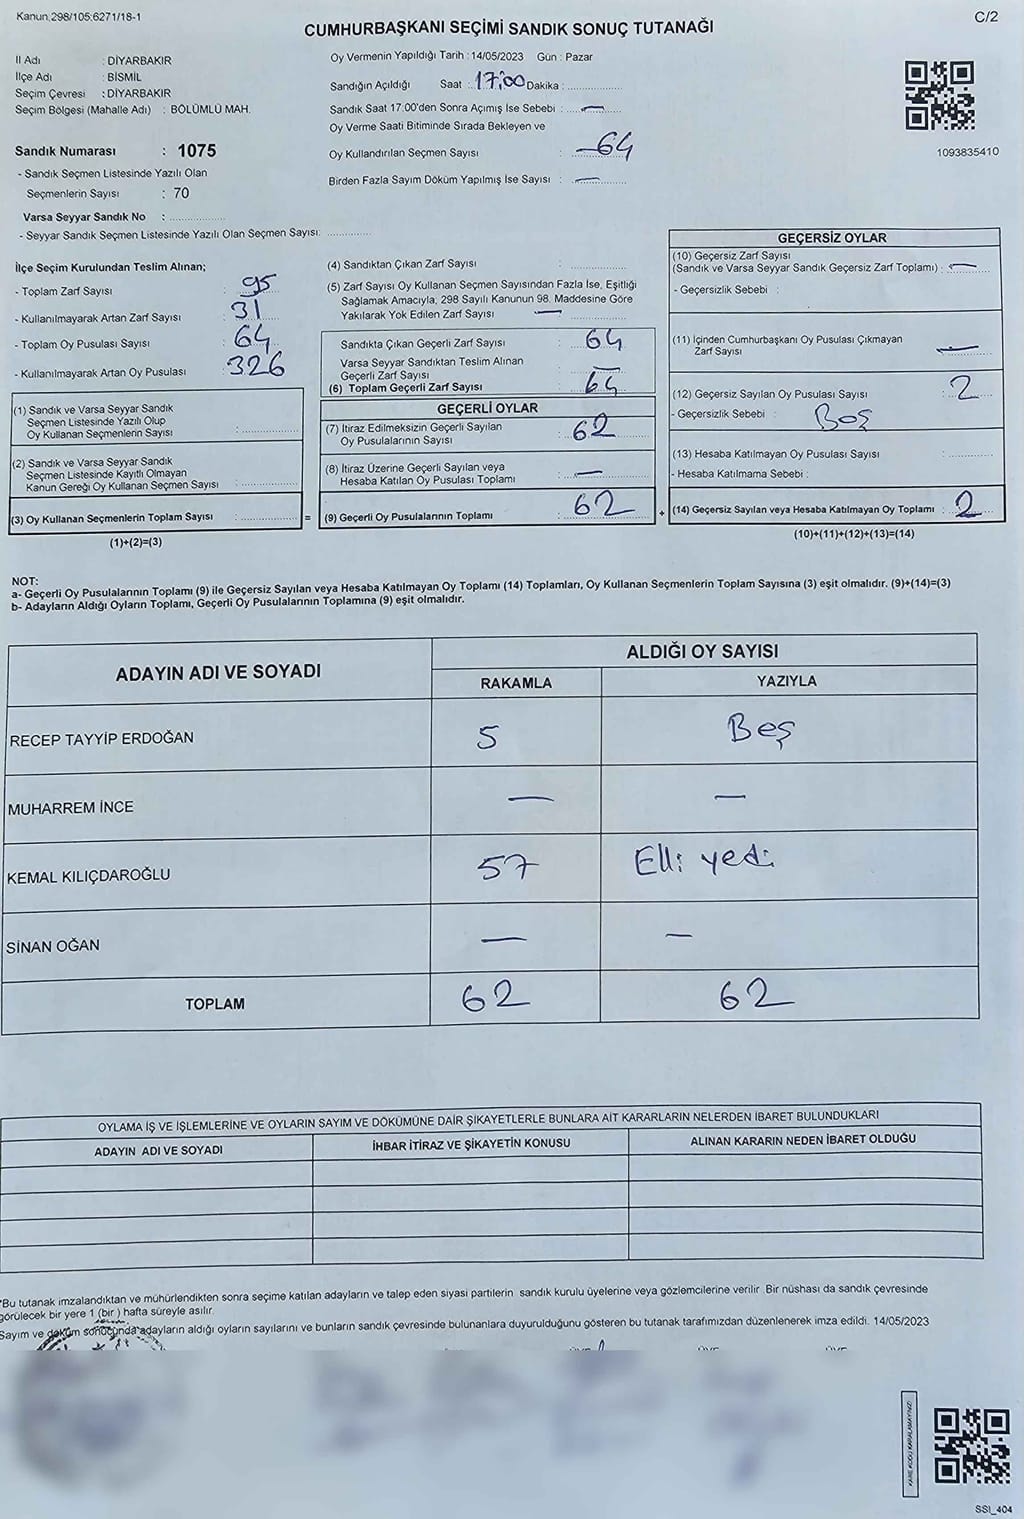 Kanun;298/105:6271/18-1
C/2
CUMHURBAŞKANI SEÇİMİ SANDIK SONUÇ TUTANAĞI
İl Adı : DİYARBAKIR
İlçe Adı : BİSMİL
Seçim Çevresi : DİYARBAKIR
Seçim Bölgesi (Mahalle Adı) : BÖLÜMLÜ MAH.
Sandık Numarası : 1075
- Sandık Seçmen Listesinde Yazılı Olan
Seçmenlerin Sayısı : 70
Varsa Seyyar Sandık No :
- Seyyar Sandık Seçmen Listesinde Yazılı Olan Seçmen Sayısı:
Oy Vermenin Yapıldığı Tarih :14/05/2023 Gün : Pazar
Sandığın Açıldığı Saat : 17:00 Dakika :
Sandık Saat 17:00'den Sonra Açımış İse Sebebi : —
Oy Verme Saati Bitiminde Sırada Bekleyen ve
Oy Kullandırılan Seçmen Sayısı : –64
Birden Fazla Sayım Döküm Yapılmış İse Sayısı : —
1093835410
İlçe Seçim Kurulundan Teslim Alınan;
- Toplam Zarf Sayısı : 95
- Kullanılmayarak Artan Zarf Sayısı : 31
- Toplam Oy Pusulası Sayısı : 64
- Kullanılmayarak Artan Oy Pusulası : 326
(1) Sandık ve Varsa Seyyar Sandık
Seçmen Listesinde Yazılı Olup
Oy Kullanan Seçmenlerin Sayısı :
(2) Sandık ve Varsa Seyyar Sandık
Seçmen Listesinde Kayıtlı Olmayan
Kanun Gereği Oy Kullanan Seçmen Sayısı :
(3) Oy Kullanan Seçmenlerin Toplam Sayısı : =
(1)+(2)=(3)
(4) Sandıktan Çıkan Zarf Sayısı :
(5) Zarf Sayısı Oy Kullanan Seçmen Sayısından Fazla İse, Eşitliği
Sağlamak Amacıyla, 298 Sayılı Kanunun 98. Maddesine Göre
Yakılarak Yok Edilen Zarf Sayısı : —
Sandıkta Çıkan Geçerli Zarf Sayısı : 64
Varsa Seyyar Sandıktan Teslim Alınan
Geçerli Zarf Sayısı : —
(6) Toplam Geçerli Zarf Sayısı : 64
GEÇERLİ OYLAR
(7) İtiraz Edilmeksizin Geçerli Sayılan
Oy Pusulalarının Sayısı : 62
(8) İtiraz Üzerine Geçerli Sayılan veya
Hesaba Katılan Oy Pusulası Toplamı : —
(9) Geçerli Oy Pusulalarının Toplamı : 62 +
GEÇERSİZ OYLAR
(10) Geçersiz Zarf Sayısı
(Sandık ve Varsa Seyyar Sandık Geçersiz Zarf Toplamı) : —
- Geçersizlik Sebebi :
(11) İçinden Cumhurbaşkanı Oy Pusulası Çıkmayan
Zarf Sayısı : —
(12) Geçersiz Sayılan Oy Pusulası Sayısı : 2
- Geçersizlik Sebebi : Boş
(13) Hesaba Katılmayan Oy Pusulası Sayısı :
- Hesaba Katılmama Sebebi :
(14) Geçersiz Sayılan veya Hesaba Katılmayan Oy Toplamı : 2
(10)+(11)+(12)+(13)=(14)
NOT:
a- Geçerli Oy Pusulalarının Toplamı (9) ile Geçersiz Sayılan veya Hesaba Katılmayan Oy Toplamı (14) Toplamları, Oy Kullanan Seçmenlerin Toplam Sayısına (3) eşit olmalıdır. (9)+(14)=(3)
b- Adayların Aldığı Oyların Toplamı, Geçerli Oy Pusulalarının Toplamına (9) eşit olmalıdır.
ADAYIN ADI VE SOYADI
ALDIĞI OY SAYISI
RAKAMLA YAZIYLA
RECEP TAYYİP ERDOĞAN 5 Beş
MUHARREM İNCE — —
KEMAL KILIÇDAROĞLU 57 Elli yedi
SİNAN OĞAN — —
TOPLAM 62 62
OYLAMA İŞ VE İŞLEMLERİNE VE OYLARIN SAYIM VE DÖKÜMÜNE DAİR ŞİKAYETLERLE BUNLARA AİT KARARLARIN NELERDEN İBARET BULUNDUKLARI
ADAYIN ADI VE SOYADI İHBAR İTİRAZ VE ŞİKAYETİN KONUSU ALINAN KARARIN NEDEN İBARET OLDUĞU
*Bu tutanak imzalandıktan ve mühürlendikten sonra seçime katılan adayların ve talep eden siyasi partilerin sandık kurulu üyelerine veya gözlemcilerine verilir. Bir nüshası da sandık çevresinde
görülecek bir yere 1 (bir ) hafta süreyle asılır.
Sayım ve döküm sonucunda adayların aldığı oyların sayılarını ve bunların sandık çevresinde bulunanlara duyurulduğunu gösteren bu tutanak tarafımızdan düzenlenerek imza edildi. 14/05/2023
KARE KODU KARALAMAYINIZ!
SSI_404